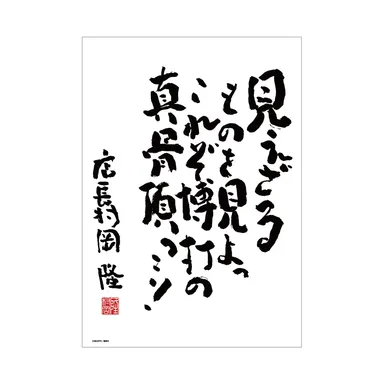 見えざる
ものを見よっ
これぞ博打の
真骨頂っ…!
店長村岡 隆